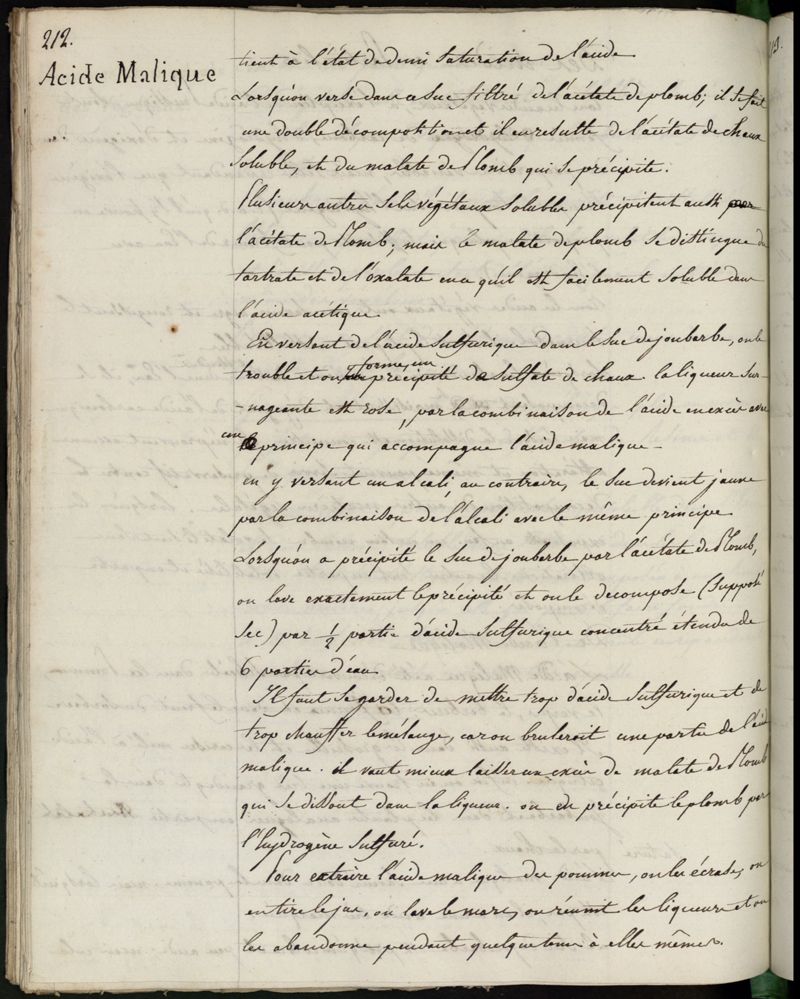 212.
Acide Malique
tient à l'état de demi saturation de l'acide
Lorsqu'on verse dans ce suc filtré de l'acétate de plomb; il se fait
une double décomposition et il en resulte de l'acétate de chaux
soluble, et du malate de Plomb qui se précipite.
Plusieurs autres sels végétaux solubles précipitent aussi par
l'acétate de Plomb; mais le malate de plomb se distingue du
tartrate et de l'oxalate en ce qu'il est facilement soluble dans
l'acide acétique
En versant de l'acide sulfurique dans le suc de joubarbe, on le
trouble et on forme un précipité de sulfate de chaux la liqueur sur-
-nageante est rose, par la combinaison de l'acide en excès avec
un principe qui accompagne l'acide malique -
en y versant un alcali, au contraire, le suc devient jaune
par la combinaison de l'alcali avec le même principe
Lorsqu'on a précipité le suc de joubarbe par l'acétate de Plomb,
on lave exactement le précipité et on le decompose (supposé
sec) par 1/2 partie d'acide sulfurique concentré étendu de
6 parties d'eau
Il faut se garder de mettre trop d'acide sulfurique et de
trop chauffer le mélange, car on bruleroit une partie de l'acide
malique. il vaut mieux laisser un excès de malate de Plomb
qui se dissout dans la liqueur. on en précipite le plomb par
l'hydrogène sulfuré.
Pour extraire l'acide malique des pommes, on les écrase, on
en tire le jus, on lave le marc, on réunit les liqueurs et on
les abandonne pendant quelque tems à elles mêmes.